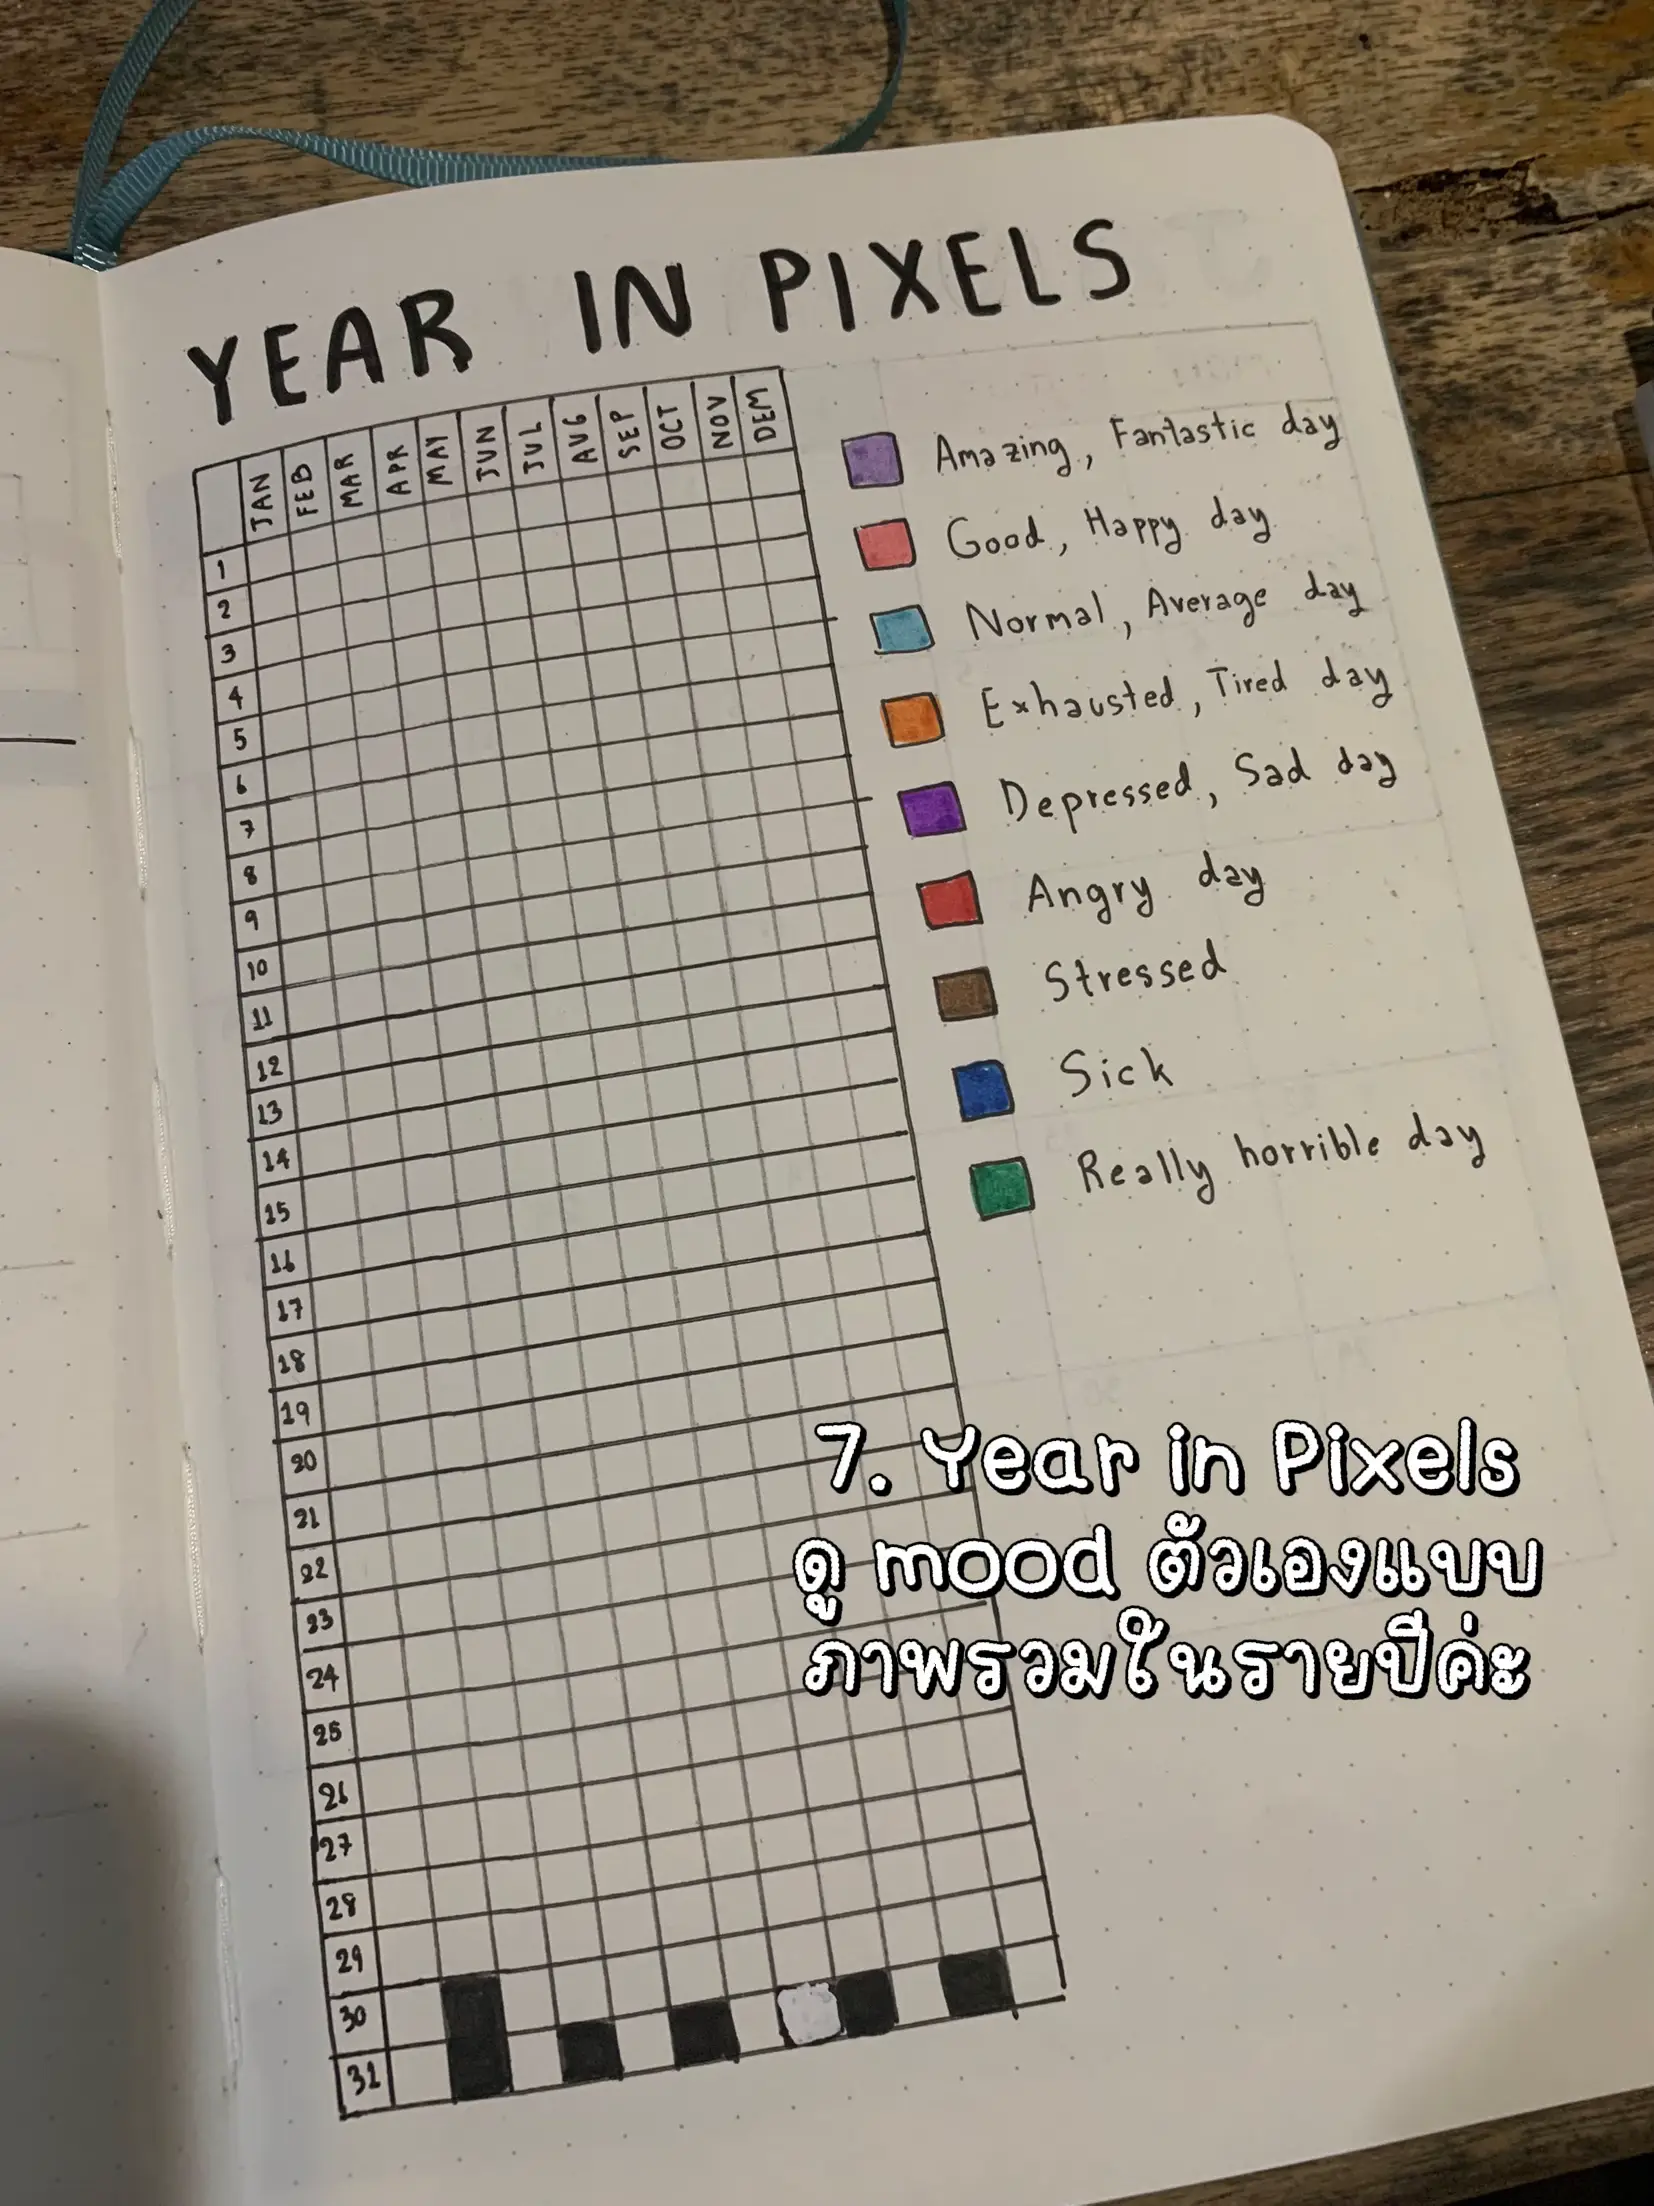 YEAR IN PIXELS
JAN FEB MAR APR MAY JUN JUL AUG SEP OCT NOV DEM
1
2
3
4
5
6
7
8
9
10
11
12
13
14
15
16
17
18
19
20
21
22
23
24
25
26
27
28
29
30
31
Amazing, Fantastic day
Good, Happy day
Normal, Average day
Exhausted, Tired day
Depressed, Sad day
Angry day
Stressed
Sick
Really horrible day
7. Year in Pixels
ดู mood ตัวเองแบบ
ภาพรวมในรายปีค่ะ